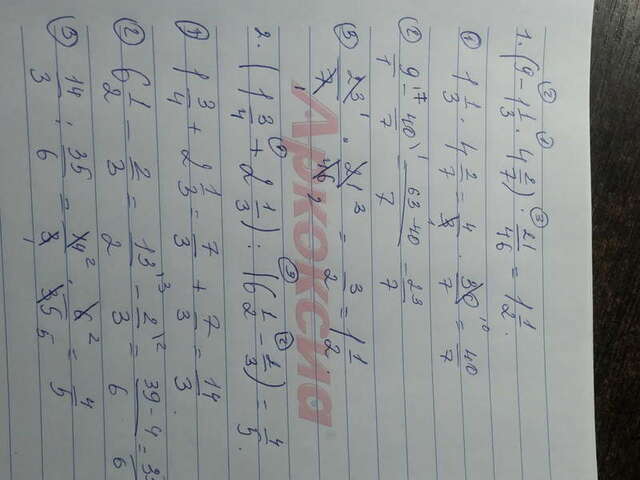 1. (9 - 1 1/3 · 4 2/7) · 21/46 = 1 1/2.
① 1 1/3 · 4 2/7 = 4/3 · 30/7 = 40/7
② 9/1 - 40/7 = 63-40/7 23/7
③ 23/7 · 21/46 = 3/2 = 1 1/2.
2. (1 3/4 + 2 1/3) : (6 1/2 - 2/3) = 4/5.
① 1 3/4 + 2 1/3 = 7/3 + 7/3 = 14/3.
② 6 1/2 - 2/3 = 13/2 - 2/3 = 39-4/6 = 35/6
③ 14/3 : 35/6 = 14/3 · 6/35 = 4/5
Аркоксиа